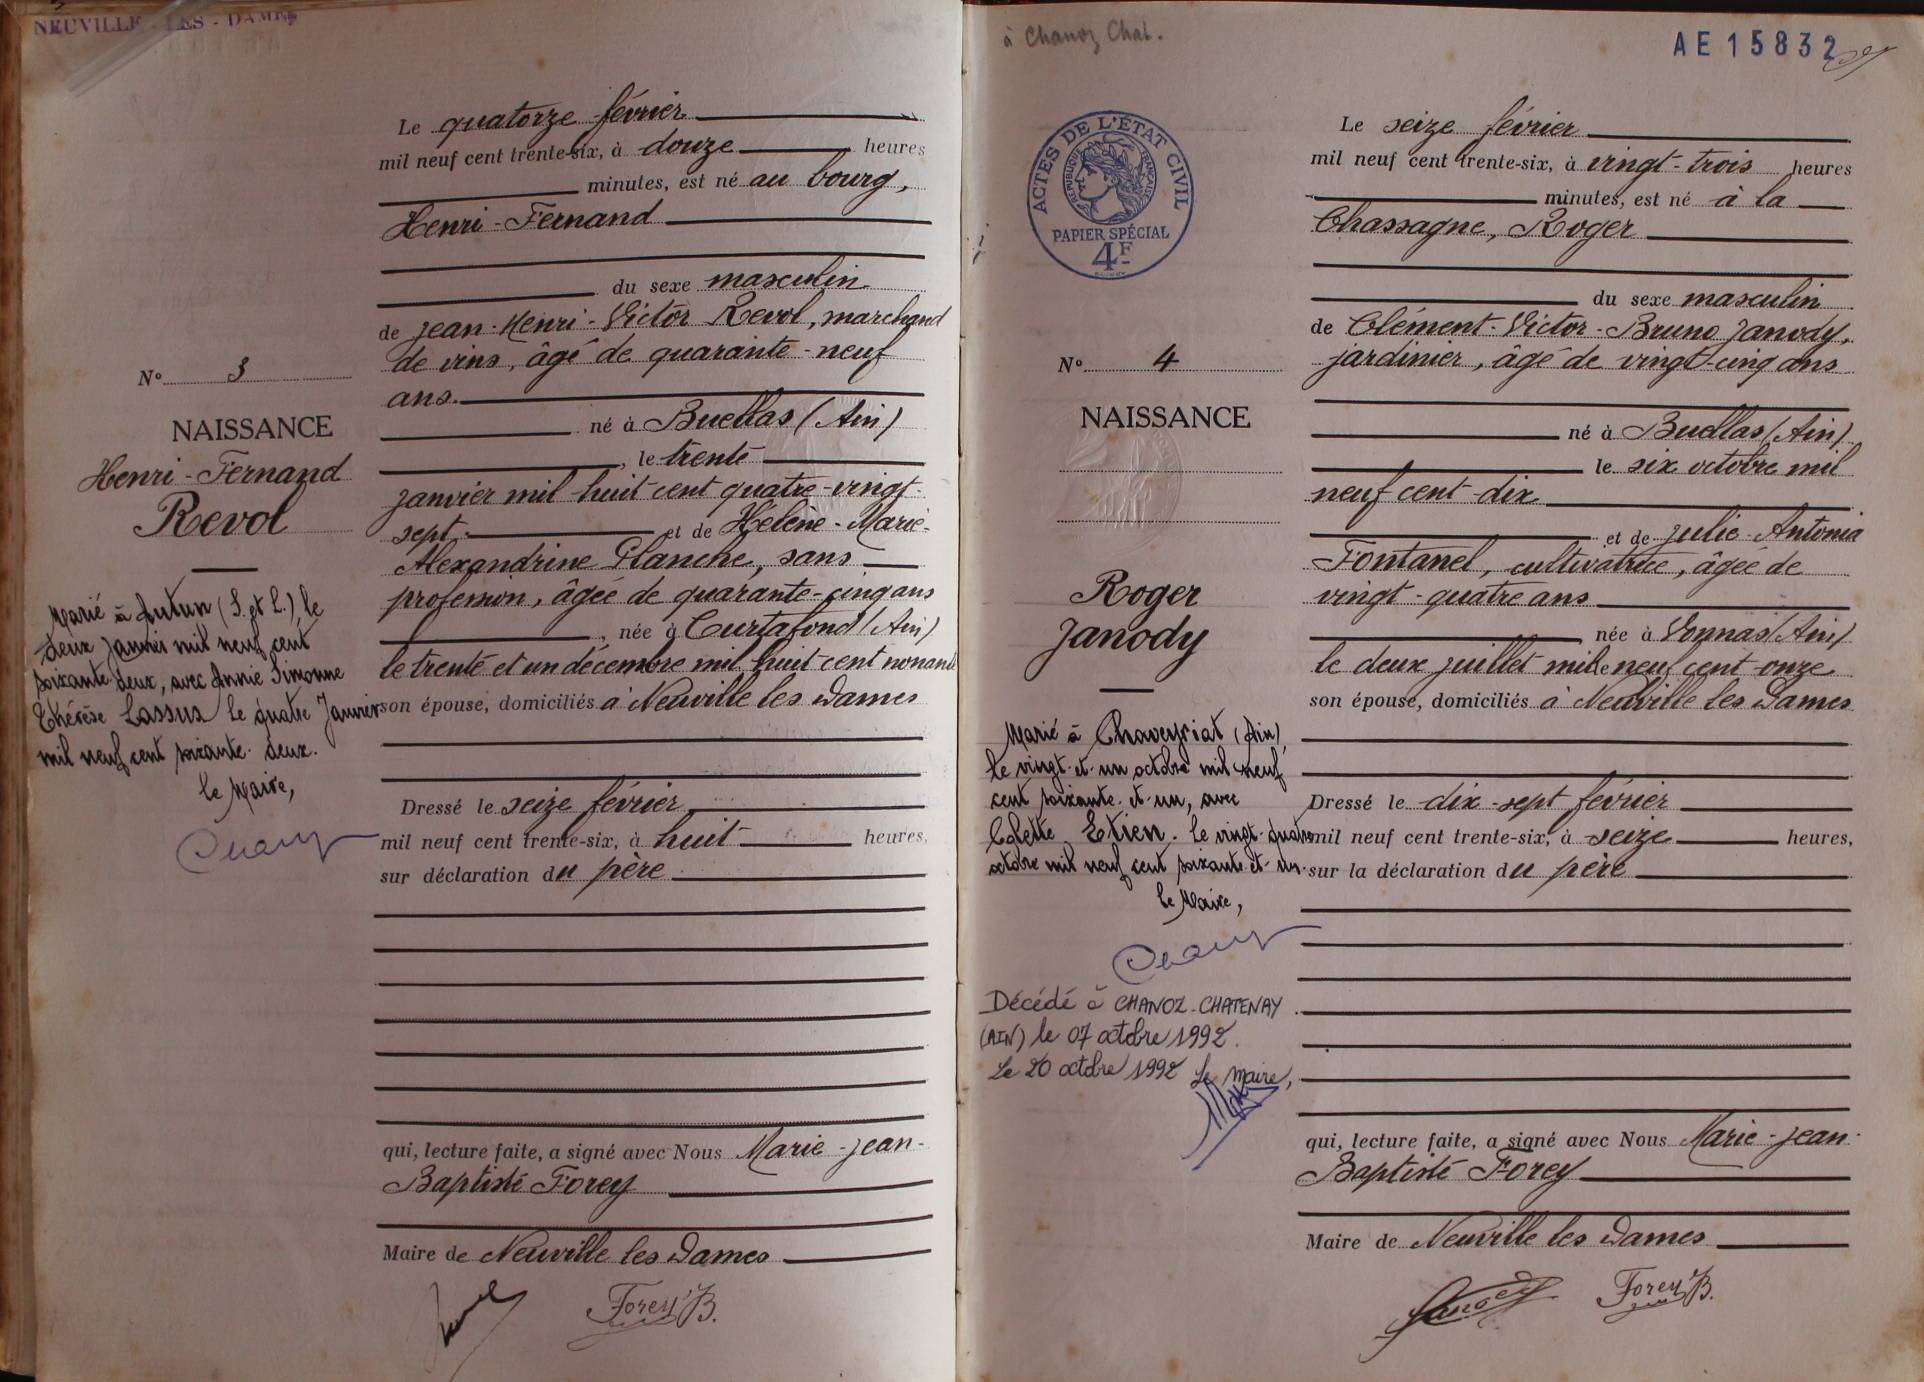 NEUVILLE - LES - DAMES
Le quatorze février
mil neuf cent trente-six, à douze heures
minutes, est né au bourg,
Henri-Fernand
du sexe masculin
de Jean-Henri-Victor Revol, marchand
de vins, âgé de quarante-neuf
ans.
né à Buellas (Ain)
, le trente
janvier mil huit cent quatre-vingt-
sept. et de Hélène-Marie-
Alexandrine Planche, sans
profession, âgée de quarante-cinq ans
, née à Curtafond (Ain)
le trente et un décembre mil huit cent nonante
son épouse, domiciliés à Neuville les Dames
Dressé le seize février
mil neuf cent trente-six, à huit heures,
sur déclaration du père
qui, lecture faite, a signé avec Nous Marie-Jean-
Baptiste Forey
Maire de Neuville les Dames
Forey B.
N° 3
NAISSANCE
Henri-Fernand
Revol
Marié à Autun (S. et L.) le
deux Janvier mil neuf cent
soixante deux, avec Annie Simonne
Thérèse Lassus le quatre Janvier
mil neuf cent soixante-deux.
le Maire,
à Chanoz Chat.
AE15832
ACTES DE L'ÉTAT CIVIL
RÉPUBLIQUE FRANÇAISE
PAPIER SPÉCIAL
4F
N° 4
NAISSANCE
Roger
Janody
Marié à Chaveyriat (Ain),
le vingt-et-un octobre mil neuf
cent soixante-et-un, avec
Colette Etien. le vingt-quatre
octobre mil neuf cent soixante-et-un.
le Maire,
Décédé à CHANOZ-CHATENAY
(AIN) le 07 octobre 1992.
Le 20 octobre 1992 Le maire,
Le seize février
mil neuf cent trente-six, à vingt-trois heures
minutes, est né à la
Chassagne, Roger
du sexe masculin
de Clément-Victor-Bruno Janody,
jardinier, âgé de vingt-cinq ans
né à Buellas (Ain)
le six octobre mil
neuf cent dix
et de Julie-Antonia
Fontanel, cultivatrice, âgée de
vingt-quatre ans
née à Vonnas (Ain)
le deux juillet mil neuf cent onze
son épouse, domiciliés à Neuville les Dames
Dressé le dix-sept février
mil neuf cent trente-six, à seize heures,
sur la déclaration du père
qui, lecture faite, a signé avec Nous Marie-Jean-
Baptiste Forey
Maire de Neuville les Dames
Janody Forey B.